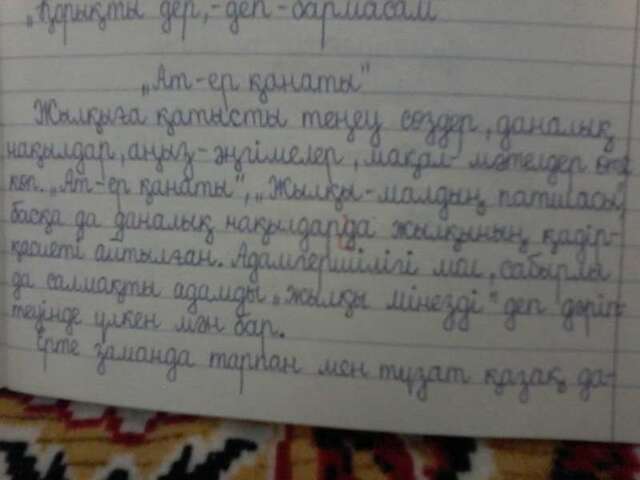 „Қорықты дер,-деп-бармасам
„Ат-ер қанаты"
Жылқыға қатысты теңеу сөздер, даналық
нақылдар, аңыз-әңгімелер, мақал-мәтелдер өте
көп. „Ат-ер қанаты", „Жылқы-малдың патшасы",
басқа да даналық нақылдарда жылқының қадір-
қасиеті айтылған. Адамгершілігі мол, сабырлы
да салмақты адамды „жылқы мінезді" деп дәріп-
теуінде үлкен мән бар.
Ерте заманда тарпан мен тұзат қазақ да-